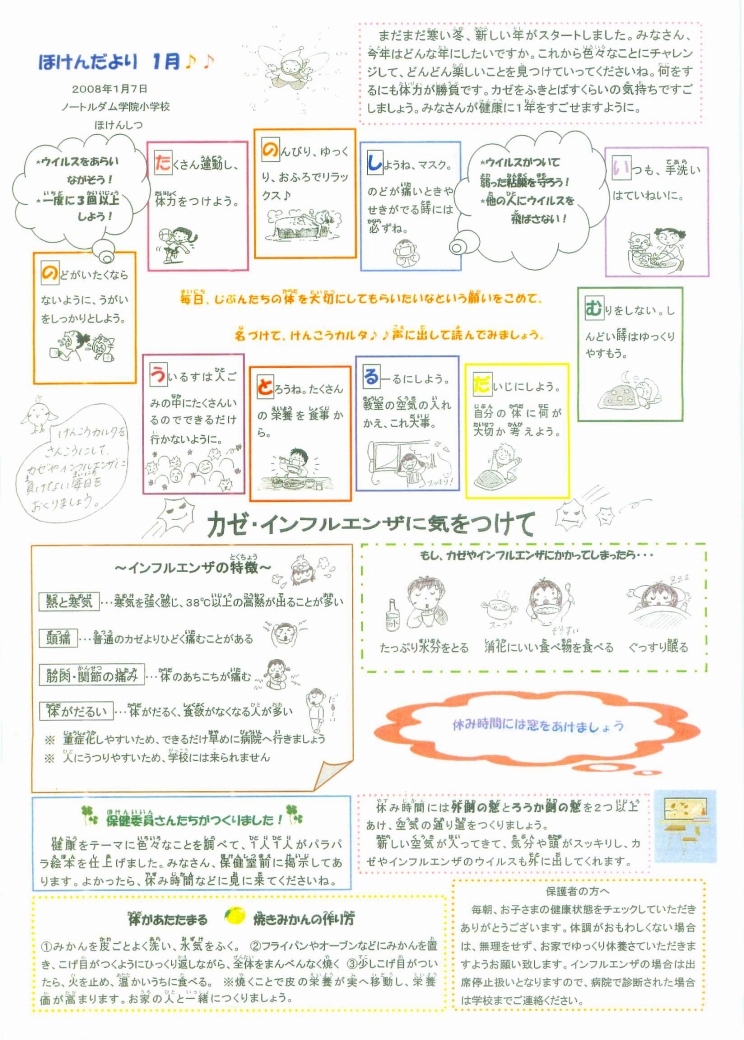 ほけんだより 1月♪♪
2008年1月7日
ノートルダム学院小学校
ほけんしつ
まだまだ寒い冬、新しい年がスタートしました。みなさん、
今年はどんな年にしたいですか。これから色々なことにチャレン
ジして、どんどん楽しいことを見つけていってくださいね。何をす
るにも体力が勝負です。カゼをふきとばすくらいの気持ちですご
しましょう。みなさんが健康に1年をすごせますように。
*ウイルスをあらい
ながそう!
*一度に3回以上
しよう!
たくさん運動し、
体力をつけよう。
のんびり、ゆっく
り、おふろでリラ
ックス♪
しようね、マスク。
のどが痛いときや
せきがでる時には
必ずね。
*ウイルスがついて
弱った粘膜を守ろう!
*他の人にウイルスを
飛ばさない!
いつも、手洗い
はていねいに。
のどがいたくなら
ないように、うがい
をしっかりとしよう。
毎日、じぶんたちの体を大切にしてもらいたいなという願いをこめて、
名づけて、けんこうカルタ♪♪声に出して読んでみましょう。
むりをしない。し
んどい時はゆっくり
やすもう。
ういるすは人ご
みの中にたくさんい
るのでできるだけ
行かないように。
とろうね。たくさん
の栄養を食事か
ら。
るーるにしよう。
教室の空気の入れ
かえ、これ大事。
だいじにしよう。
自分の体に何が
大切か考えよう。
けんこうカルタを
さんこうにして、
カゼやインフルエンザに
負けない毎日を
おくりましょう。
カゼ・インフルエンザに気をつけて
~インフルエンザの特徴~
熱と寒気…寒気を強く感じ、38℃以上の高熱が出ることが多い
頭痛…普通のカゼよりひどく痛むことがある
筋肉・関節の痛み…体のあちこちが痛む
体がだるい…体がだるく、食欲がなくなる人が多い
※ 重症化しやすいため、できるだけ早めに病院へ行きましょう
※ 人にうつりやすいため、学校には来られません
もし、カゼやインフルエンザにかかってしまったら・・・
スープ
ぞうすい
たっぷり水分をとる 消化にいい食べ物を食べる ぐっすり眠る
休み時間には窓をあけましょう
保健委員さんたちがつくりました!
健康をテーマに色々なことを調べて、1人1人がパラパ
ラ絵本を仕上げました。みなさん、保健室前に掲示してあ
ります。よかったら、休み時間などに見に来てくださいね。
休み時間には外側の窓とろうか側の窓を2つ以上
あけ、空気の通り道をつくりましょう。
新しい空気が入ってきて、気分や頭がスッキリし、カ
ゼやインフルエンザのウイルスも外に出してくれます。
体があたたまる 焼きみかんの作り方
①みかんを皮ごとよく洗い、水気をふく。 ②フライパンやオーブンなどにみかんを置
き、こげ目がつくようにひっくり返しながら、全体をまんべんなく焼く ③少しこげ目がつい
たら、火を止め、温かいうちに食べる。 ※焼くことで皮の栄養が実へ移動し、栄養
価が高まります。お家の人と一緒につくりましょう。
保護者の方へ
毎朝、お子さまの健康状態をチェックしていただき
ありがとうございます。体調がおもわしくない場合
は、無理をせず、お家でゆっくり休養させていただきま
すようお願い致します。インフルエンザの場合は出
席停止扱いとなりますので、病院で診断された場合
は学校までご連絡ください。